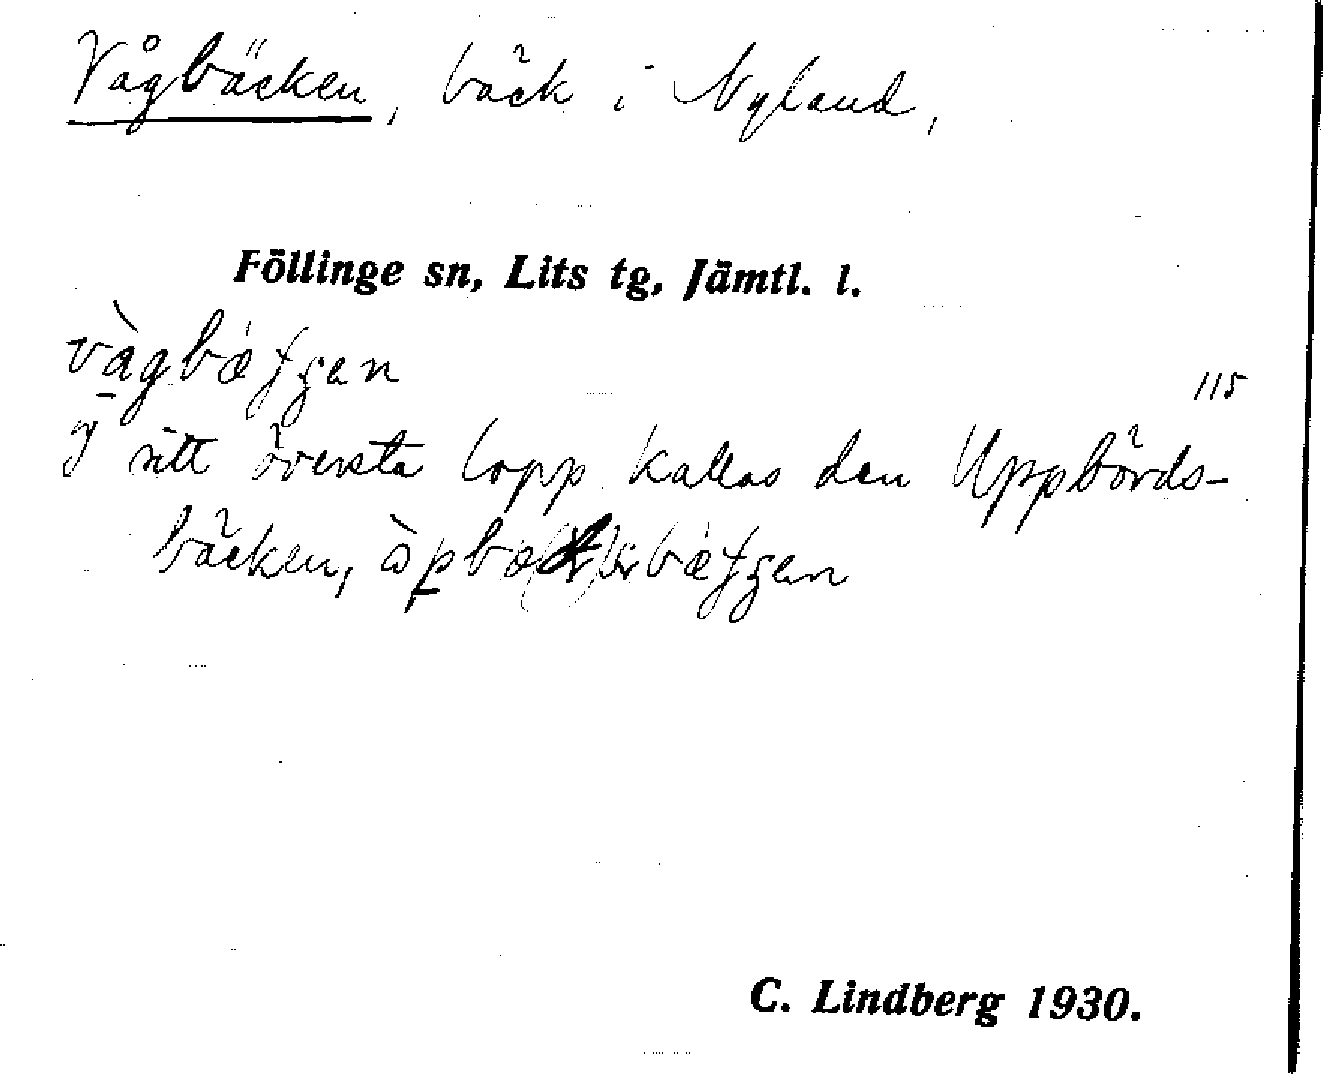 Vågbäcken, bäck i Nyland,
Föllinge sn, Lits tg, Jämtl. l.
115
I sitt översta lopp kallas den Uppbörds-
bäcken,
C. Lindberg 1930.